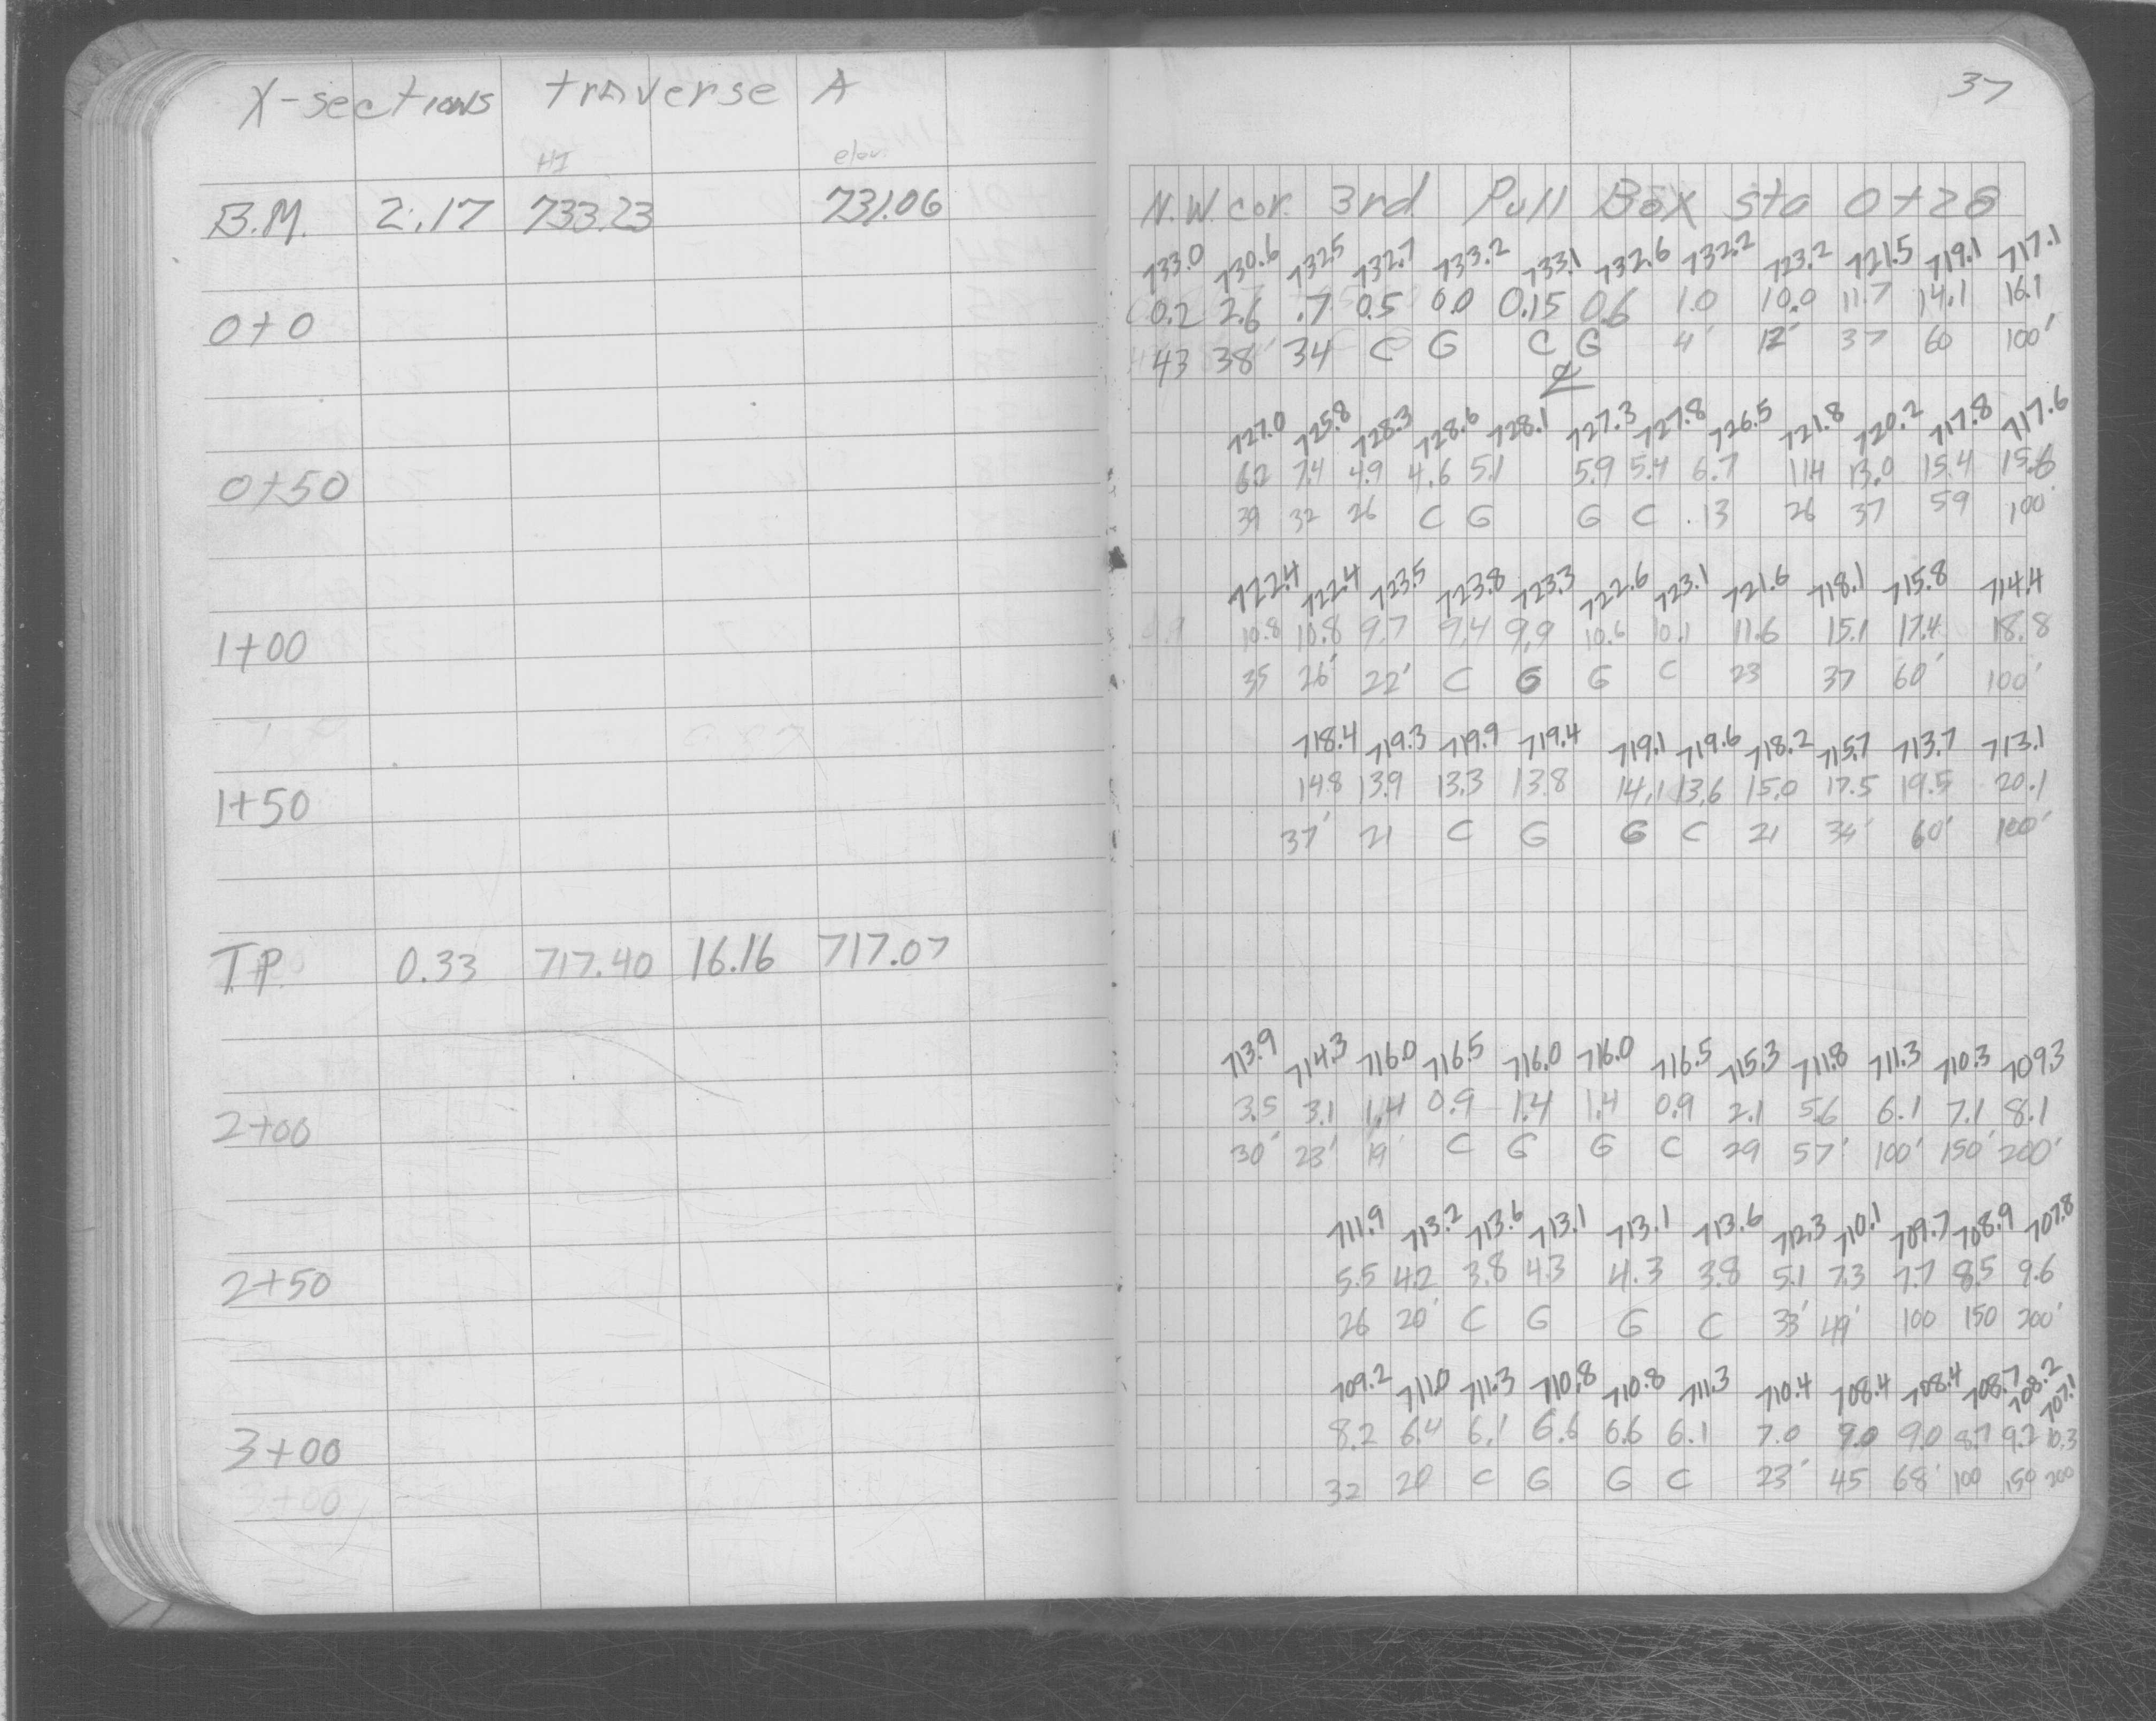 X-sections traverse A
37
HI elev.
B.M. 2.17 733.23 731.06
N.W. cor. 3rd Pull Box sta 0+28
733.0 730.6 732.5 732.7 733.2 733.1 732.6 732.2 723.2 721.5 719.1 717.1
0+0
0.2 2.6 .7 0.5 0.0 0.15 0.6 1.0 10.0 11.7 14.1 16.1
43 38' 34 C G C G 4' 12' 37 60 100'
727.0 725.8 728.3 728.6 728.1 727.3 727.8 726.5 721.8 720.2 717.8 717.6
0+50
6.2 7.4 4.9 4.6 5.1 5.9 5.4 6.7 11.4 13.0 15.4 15.6
39 32 26 C G G C 13 26 37 59 100'
722.4 722.4 723.5 723.8 723.3 722.6 723.1 721.6 718.1 715.8 714.4
1+00
10.8 10.8 9.7 9.4 9.9 10.6 10.1 11.6 15.1 17.4 18.8
35 26' 22' C G G C 23 37 60' 100'
718.4 719.3 719.9 719.4 719.1 719.6 718.2 715.7 713.7 713.1
1+50
14.8 13.9 13.3 13.8 14.1 13.6 15.0 17.5 19.5 20.1
37' 21 C G G C 21 34' 60' 100'
T.P. 0.33 717.40 16.16 717.07
713.9 714.3 716.0 716.5 716.0 716.0 716.5 715.3 711.8 711.3 710.3 709.3
2+00
3.5 3.1 1.4 0.9 1.4 1.4 0.9 2.1 5.6 6.1 7.1 8.1
30' 23' 19' C G G C 29 57' 100' 150' 200'
711.9 713.2 713.6 713.1 713.1 713.6 712.3 710.1 709.7 708.9 707.8
2+50
5.5 4.2 3.8 4.3 4.3 3.8 5.1 7.3 7.7 8.5 9.6
26 20' C G G C 33' 49' 100 150 200'
709.2 711.0 711.3 710.8 710.8 711.3 710.4 708.4 708.4 708.7 708.2 707.1
3+00
8.2 6.4 6.1 6.6 6.6 6.1 7.0 9.0 9.0 8.7 9.2 10.3
32 20 C G G C 23' 45 68' 100 150 200
3+00